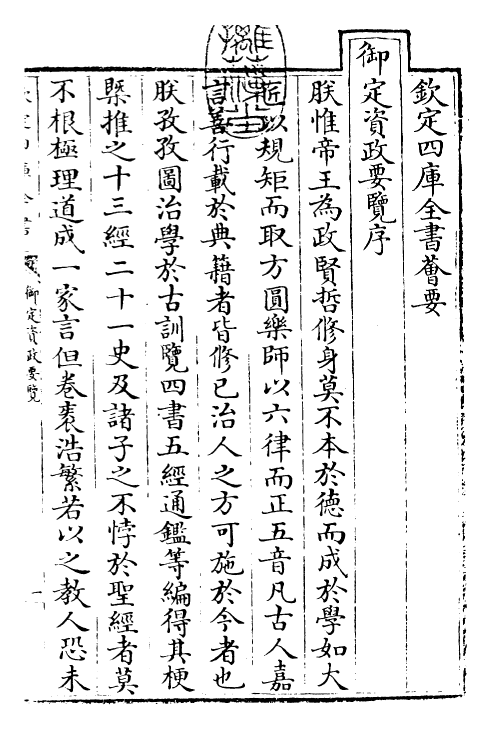 欽定四庫全書薈要
御定資政要覽序
朕惟帝王為政賢哲修身莫不本於德而成於學如大
匠以規矩而取方圓樂師以六律而正五音凡古人嘉
言善行載於典籍者皆修己治人之方可施於今者也
朕孜孜圖治學於古訓覽四書五經通鑑等編得其梗
槩推之十三經二十一史及諸子之不悖於聖經者莫
不根極理道成一家言但卷袠浩繁若以之教人恐未
御定資政要覽
一